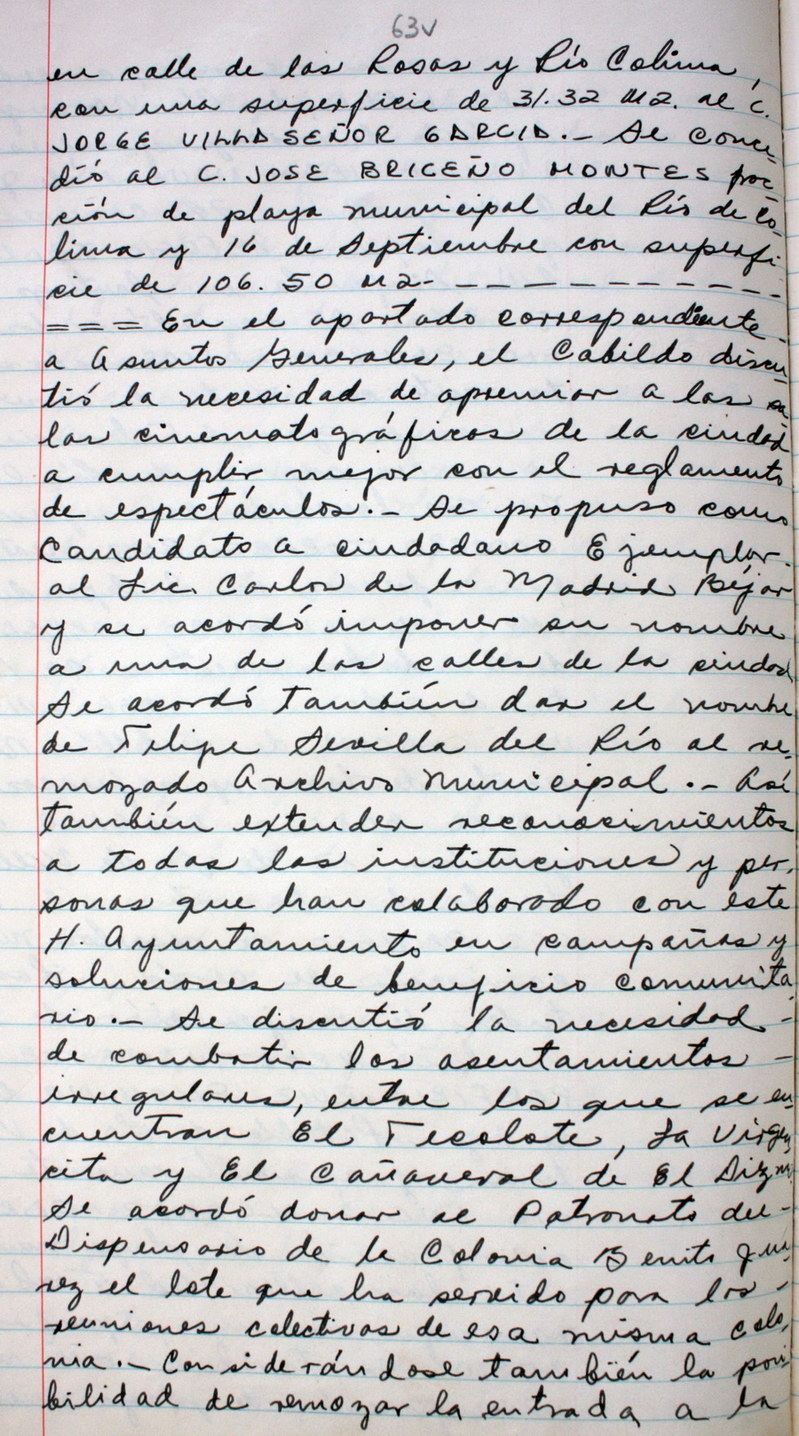 63v
en calle de las Rosas y Río Colima,
con una superficie de 31.32 M2. al C.
JORGE VILLASEÑOR GARCIA.- Se conce-
dió al C. JOSE BRICEÑO MONTES por-
ción de playa municipal del Río de Co-
lima y 16 de Septiembre con superfi-
cie de 106.50 M2- - - - - - - - - - -
=== En el apartado correspondiente-
a Asuntos Generales, el Cabildo discu-
tió la necesidad de apremiar a las sa-
las cinematográficas de la ciudad
a cumplir mejor con el reglamento
de espectáculos.- Se propuso como
Candidato a ciudadano Ejemplar-
al Lic. Carlos de la Madrid Béjar
y se acordó imponer su nombre
a una de las calles de la ciudad
Se acordó también dar el nombre
de Felipe Sevilla del Río al re-
mozado Archivo Municipal.- Así
también extender reconocimientos
a todas las instituciones y per-
sonas que han colaborado con este
H. Ayuntamiento en campañas y
soluciones de beneficio comunita-
rio.- Se discutió la necesidad-
de combatir los asentamientos-
irregulares, entre los que se en-
cuentran El Tecolote, La Virgen-
cita y El Cañaveral de El Diezmo
Se acordó donar al Patronato del-
Dispensario de la Colonia Benito Juá-
rez el lote que ha servido para las-
reuniones colectivas de esa misma colo-
nia.- Considerándose también la posi-
bilidad de remozar la entrada a la